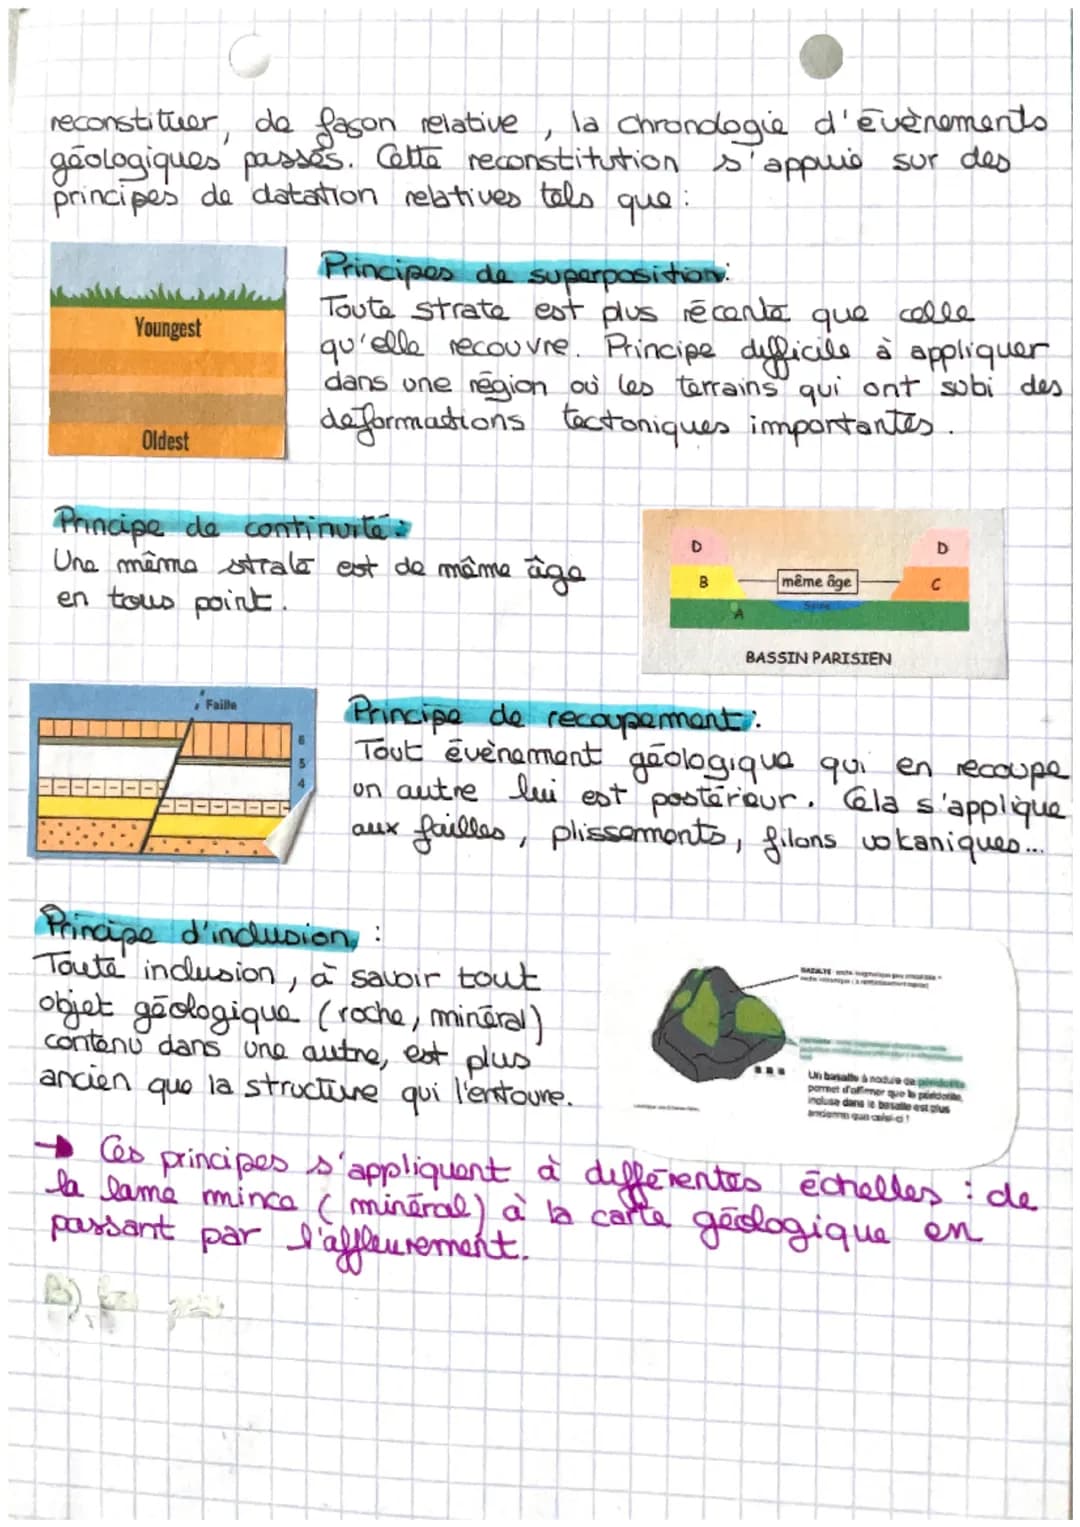 reconstituer, de façon relative, la chronologie d'évènements
géologiques passés. Cette reconstitution s'appuie sur des
principes de datation relatives tels que :
Youngest
Oldest
Principes de superposition :
Toute strate est plus récente que celle
qu'elle recouvre. Principe difficile à appliquer
dans une région où les terrains qui ont subi des
deformations tectoniques importantes.
Principe de continuité :
Une même strate est de même âge
en tous point.
D
D
B
même âge
C
A
Seine
BASSIN PARISIEN
Faille
6
5
4
Principe de recoupement :
Tout évènement géologique qui en recoupe
un autre lui est postérieur. Cela s'applique
aux failles, plissements, filons volcaniques...
Principe d'inclusion :
Toute inclusion, à savoir tout
objet géologique (roche, minéral)
contenu dans une autre, est plus
ancien que la structure qui l'entoure.
Un basalte à nodule de péridotite
permet d'affirmer que la péridotite,
incluse dans le basalte est plus
ancienne que celui-ci !
→ Ces principes s'appliquent à différentes échelles : de
la lame mince (minéral) à la carte géologique en
passant par l'affleurement.